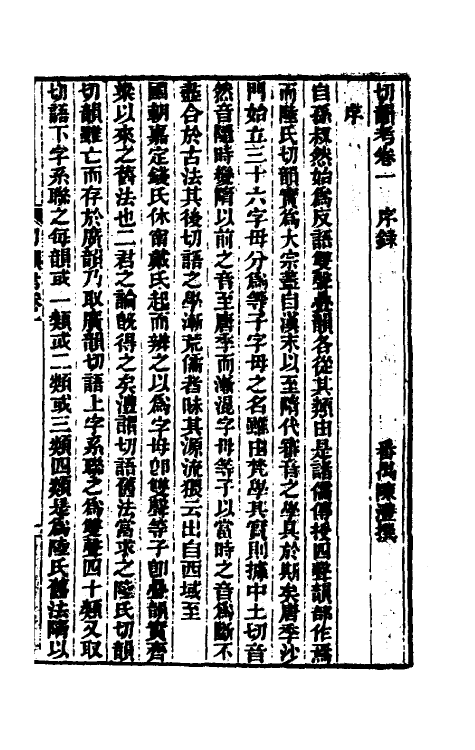 切韻考卷一　序錄　番禺陳澧撰
序
自孫叔然始爲反語雙聲疊韻各從其類由是諸儒傳授四聲韻部作焉
而陸氏切韻實爲大宗蓋自漢末以至隋代審音之學具於斯矣唐季沙
門始立三十六字母分爲等子字母之名雖由梵學其實則據中土切音
然音隨時變隋以前之音至唐季而漸混字母等子以當時之音爲斷不
盡合於古法其後切語之學漸荒儒者昧其源流猥云出自西域至
國朝嘉定錢氏休甯戴氏起而辨之以爲字母卽雙聲等子卽疊韻實齊
梁以來之舊法也二君之論旣得之矣澧謂切語舊法當求之陸氏切韻
切韻雖亡而存於廣韻乃取廣韻切語上字系聯之爲雙聲四十類又取
切語下字系聯之每韻或一類或二類或三類四類是爲陸氏舊法隋以